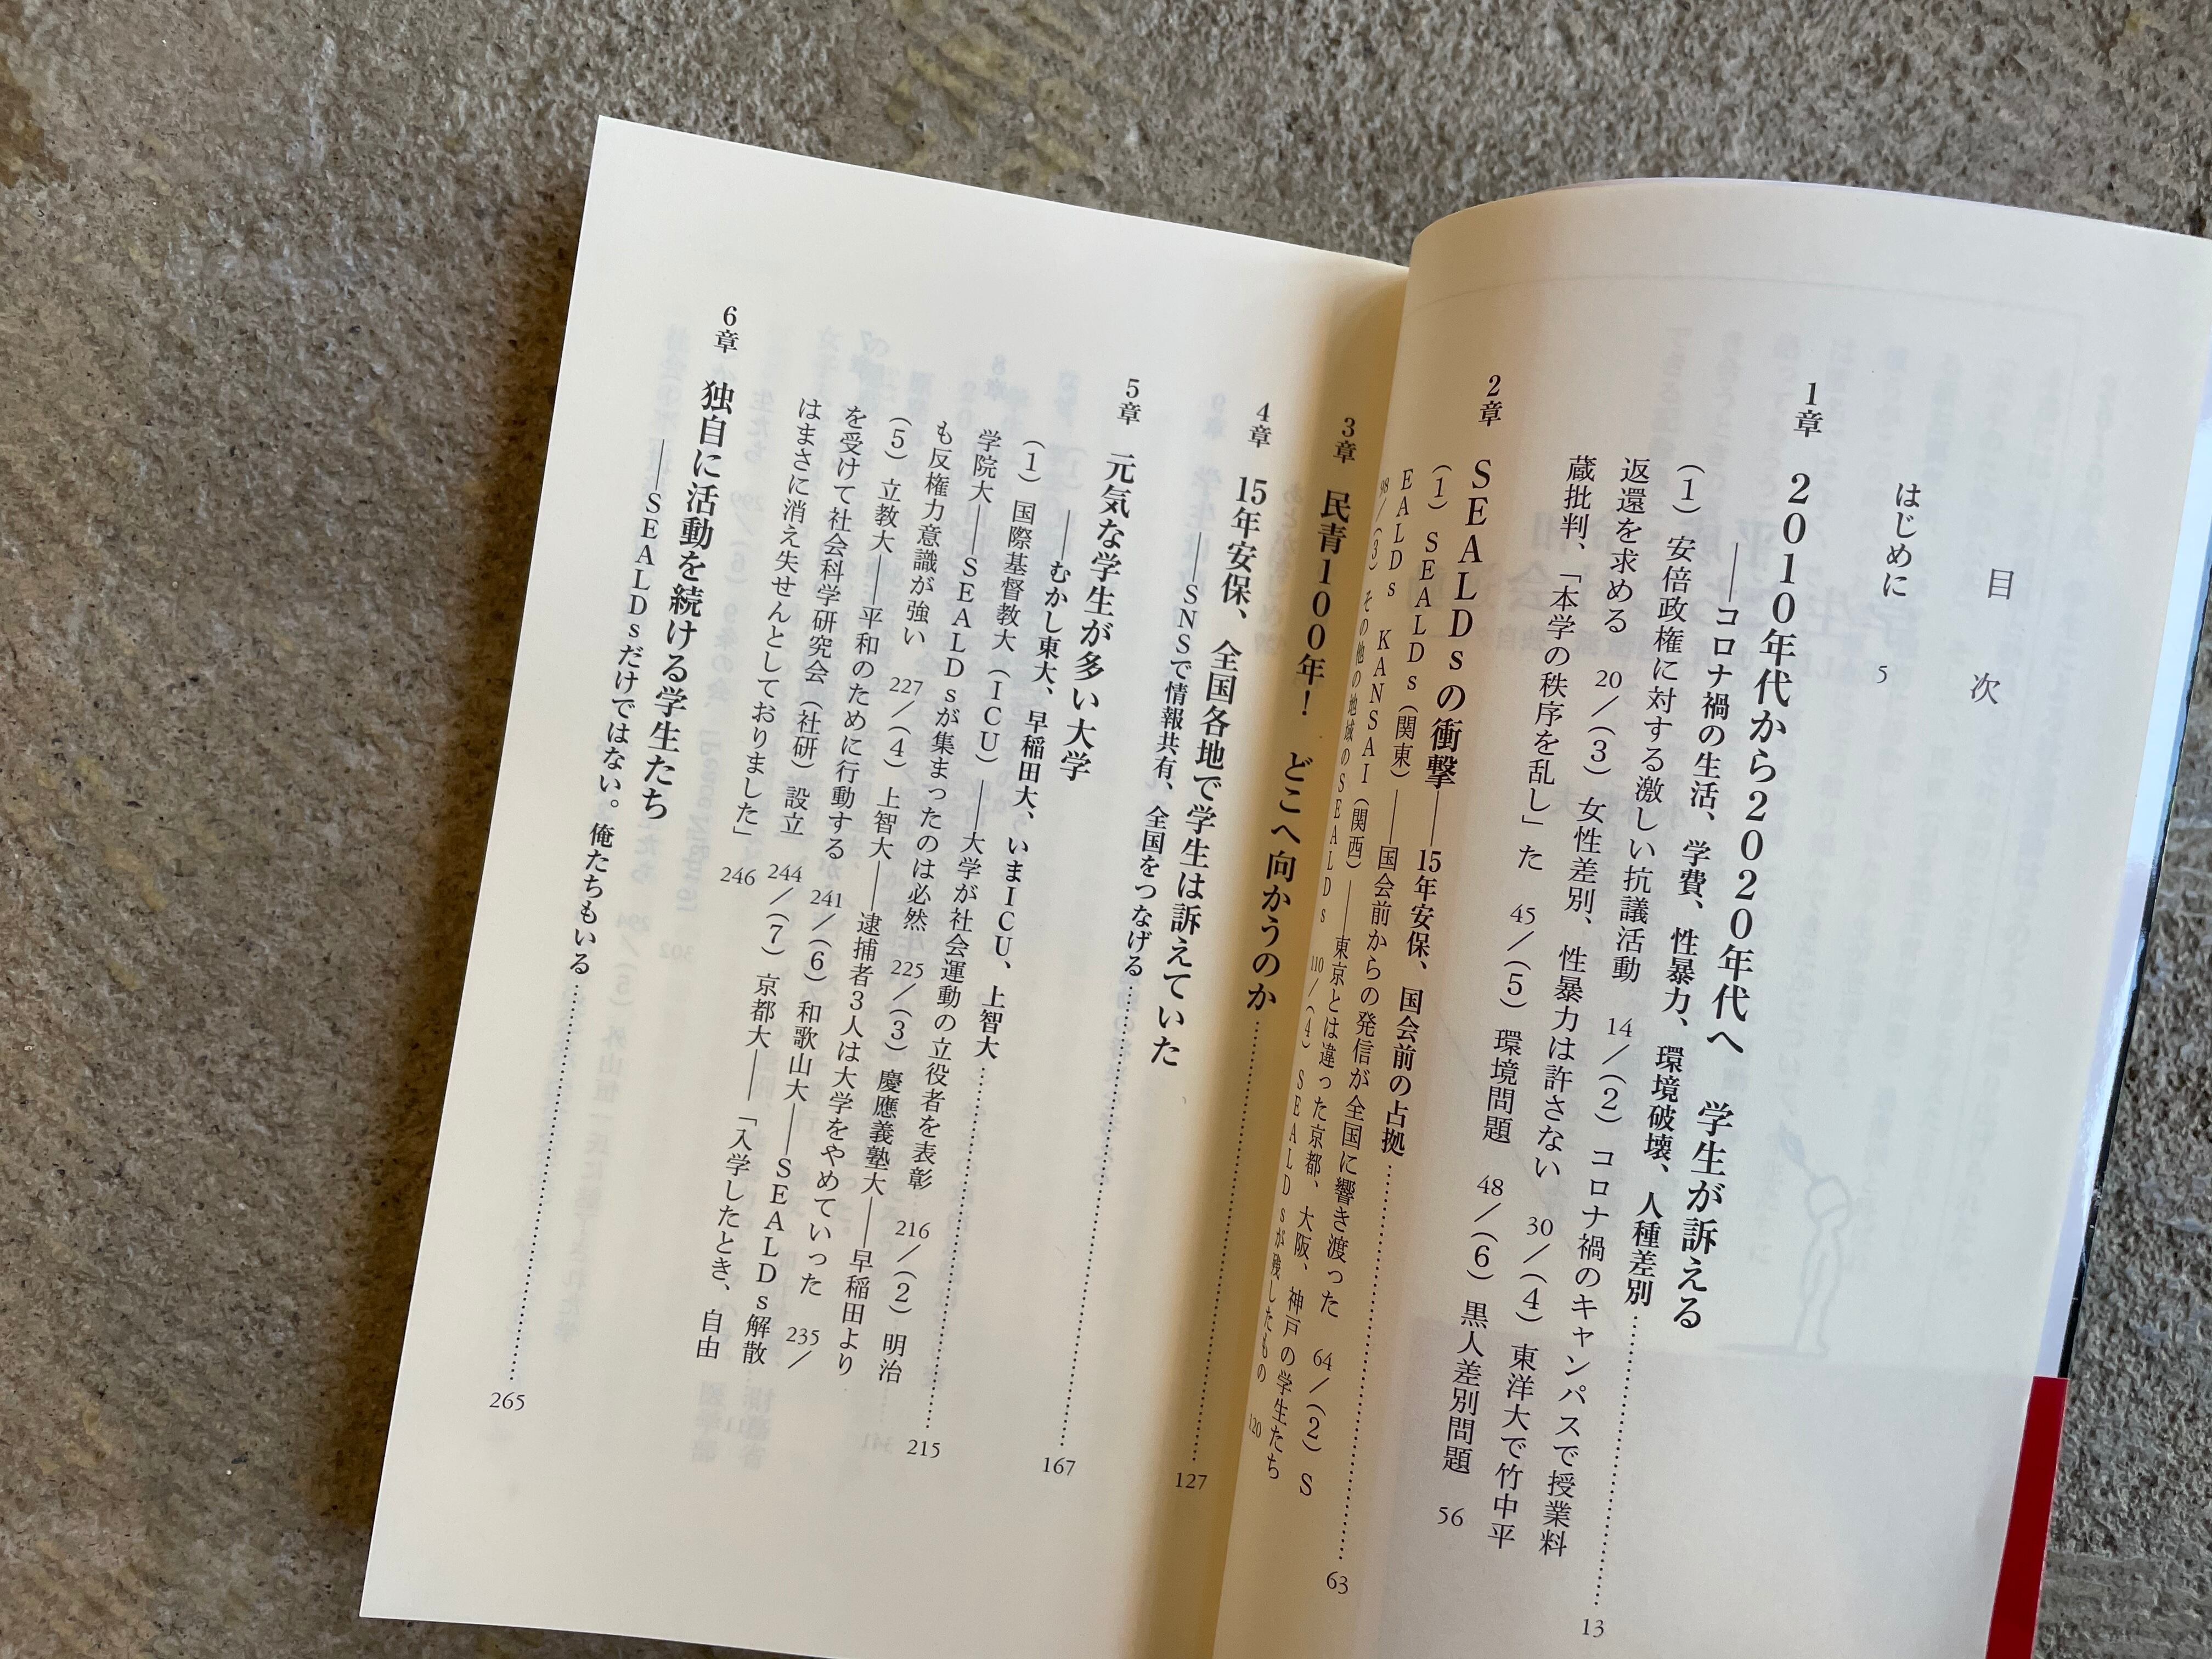 目 次
はじめに 5
1章 2010年代から2020年代へ 学生が訴える
――コロナ禍の生活、学費、性暴力、環境破壊、人種差別 …… 13
(1) 安倍政権に対する激しい抗議活動 14/(2) コロナ禍のキャンパスで授業料
返還を求める 20/(3) 女性差別、性暴力は許さない 30/(4) 東洋大で竹中平
蔵批判、「本学の秩序を乱し」た 45/(5) 環境問題 48/(6) 黒人差別問題 56
2章 SEALDsの衝撃――15年安保、国会前の占拠 …… 63
(1) SEALDs(関東)――国会前からの発信が全国に響き渡った 64/(2) S
EALDs KANSAI(関西)――東京とは違った京都、大阪、神戸の学生たち
98/(3) その他の地域のSEALDs 110/(4) SEALDsが残したもの 120
3章 民青100年! どこへ向かうのか …… 127
4章 15年安保、全国各地で学生は訴えていた
――SNSで情報共有、全国をつなげる …… 167
5章 元気な学生が多い大学
――むかし東大、早稲田大、いまICU、上智大 …… 215
(1) 国際基督教大(ICU)――大学が社会運動の立役者を表彰 216/(2) 明治
学院大――SEALDsが集まったのは必然 225/(3) 慶應義塾大――早稲田より
も反権力意識が強い 227/(4) 上智大――逮捕者3人は大学をやめていった 235/
(5) 立教大――平和のために行動する 241/(6) 和歌山大――SEALDs解散
を受けて社会科学研究会(社研)設立 244/(7) 京都大――「入学したとき、自由
はまさに消え失せんとしておりました」 246
6章 独自に活動を続ける学生たち
――SEALDsだけではない。俺たちもいる …… 265